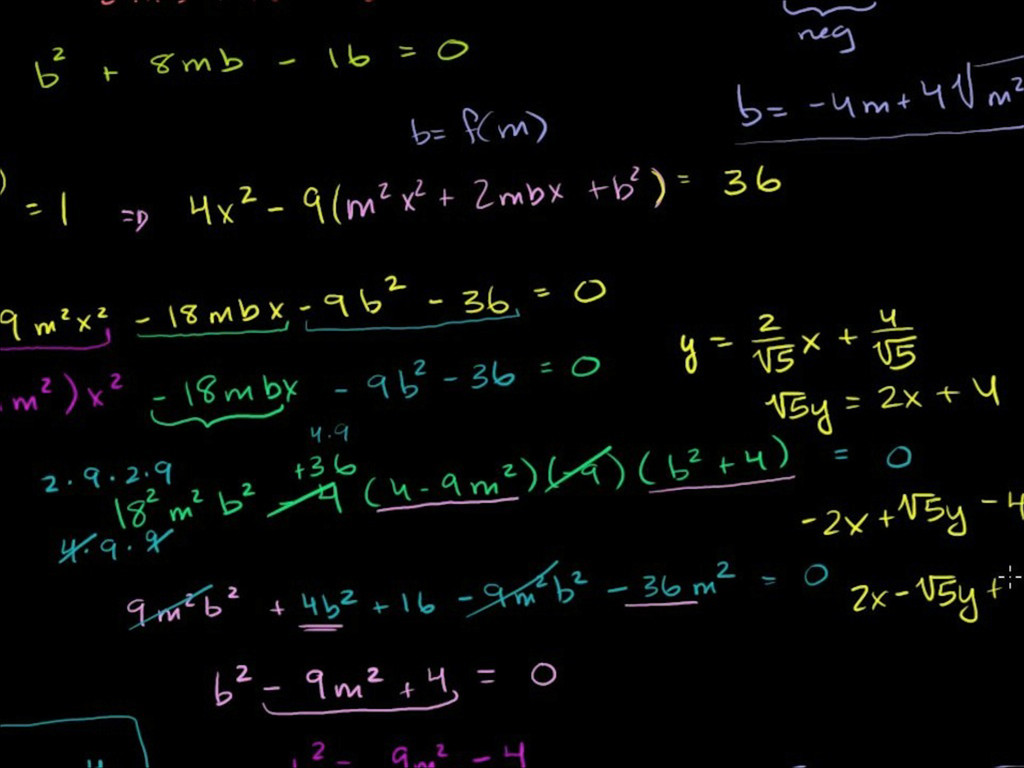 neg
b² + 8mb - 16 = 0
b = -4m + 4√m²
b = f(m)
) = 1 ⇒ 4x² - 9(m²x² + 2mbx + b²) = 36
9m²x² - 18mbx - 9b² - 36 = 0
y = 2/√5 x + 4/√5
m²)x² - 18mbx - 9b² - 36 = 0
√5y = 2x + 4
4·9
2·9·2·9 +36
18²m²b² - 4(4 - 9m²)(-9)(b² + 4) = 0
-2x + √5y - 4
4·9·9
9m²b² + 4b² + 16 - 9m²b² - 36m² = 0
2x - √5y +
b² - 9m² + 4 = 0
b² = 9m² - 4